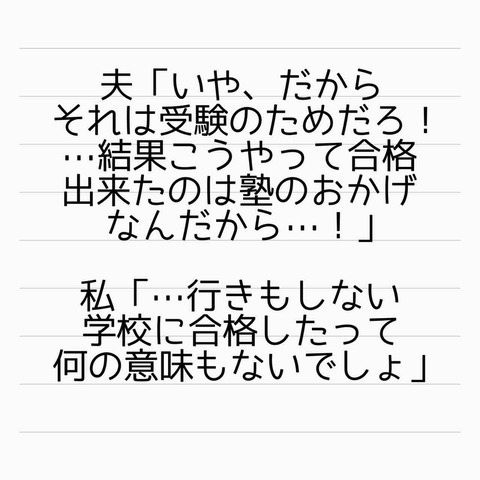 夫「いや、だから
それは受験のためだろ！
…結果こうやって合格
出来たのは塾のおかげ
なんだから…！」
私「…行きもしない
学校に合格したって
何の意味もないでしょ」